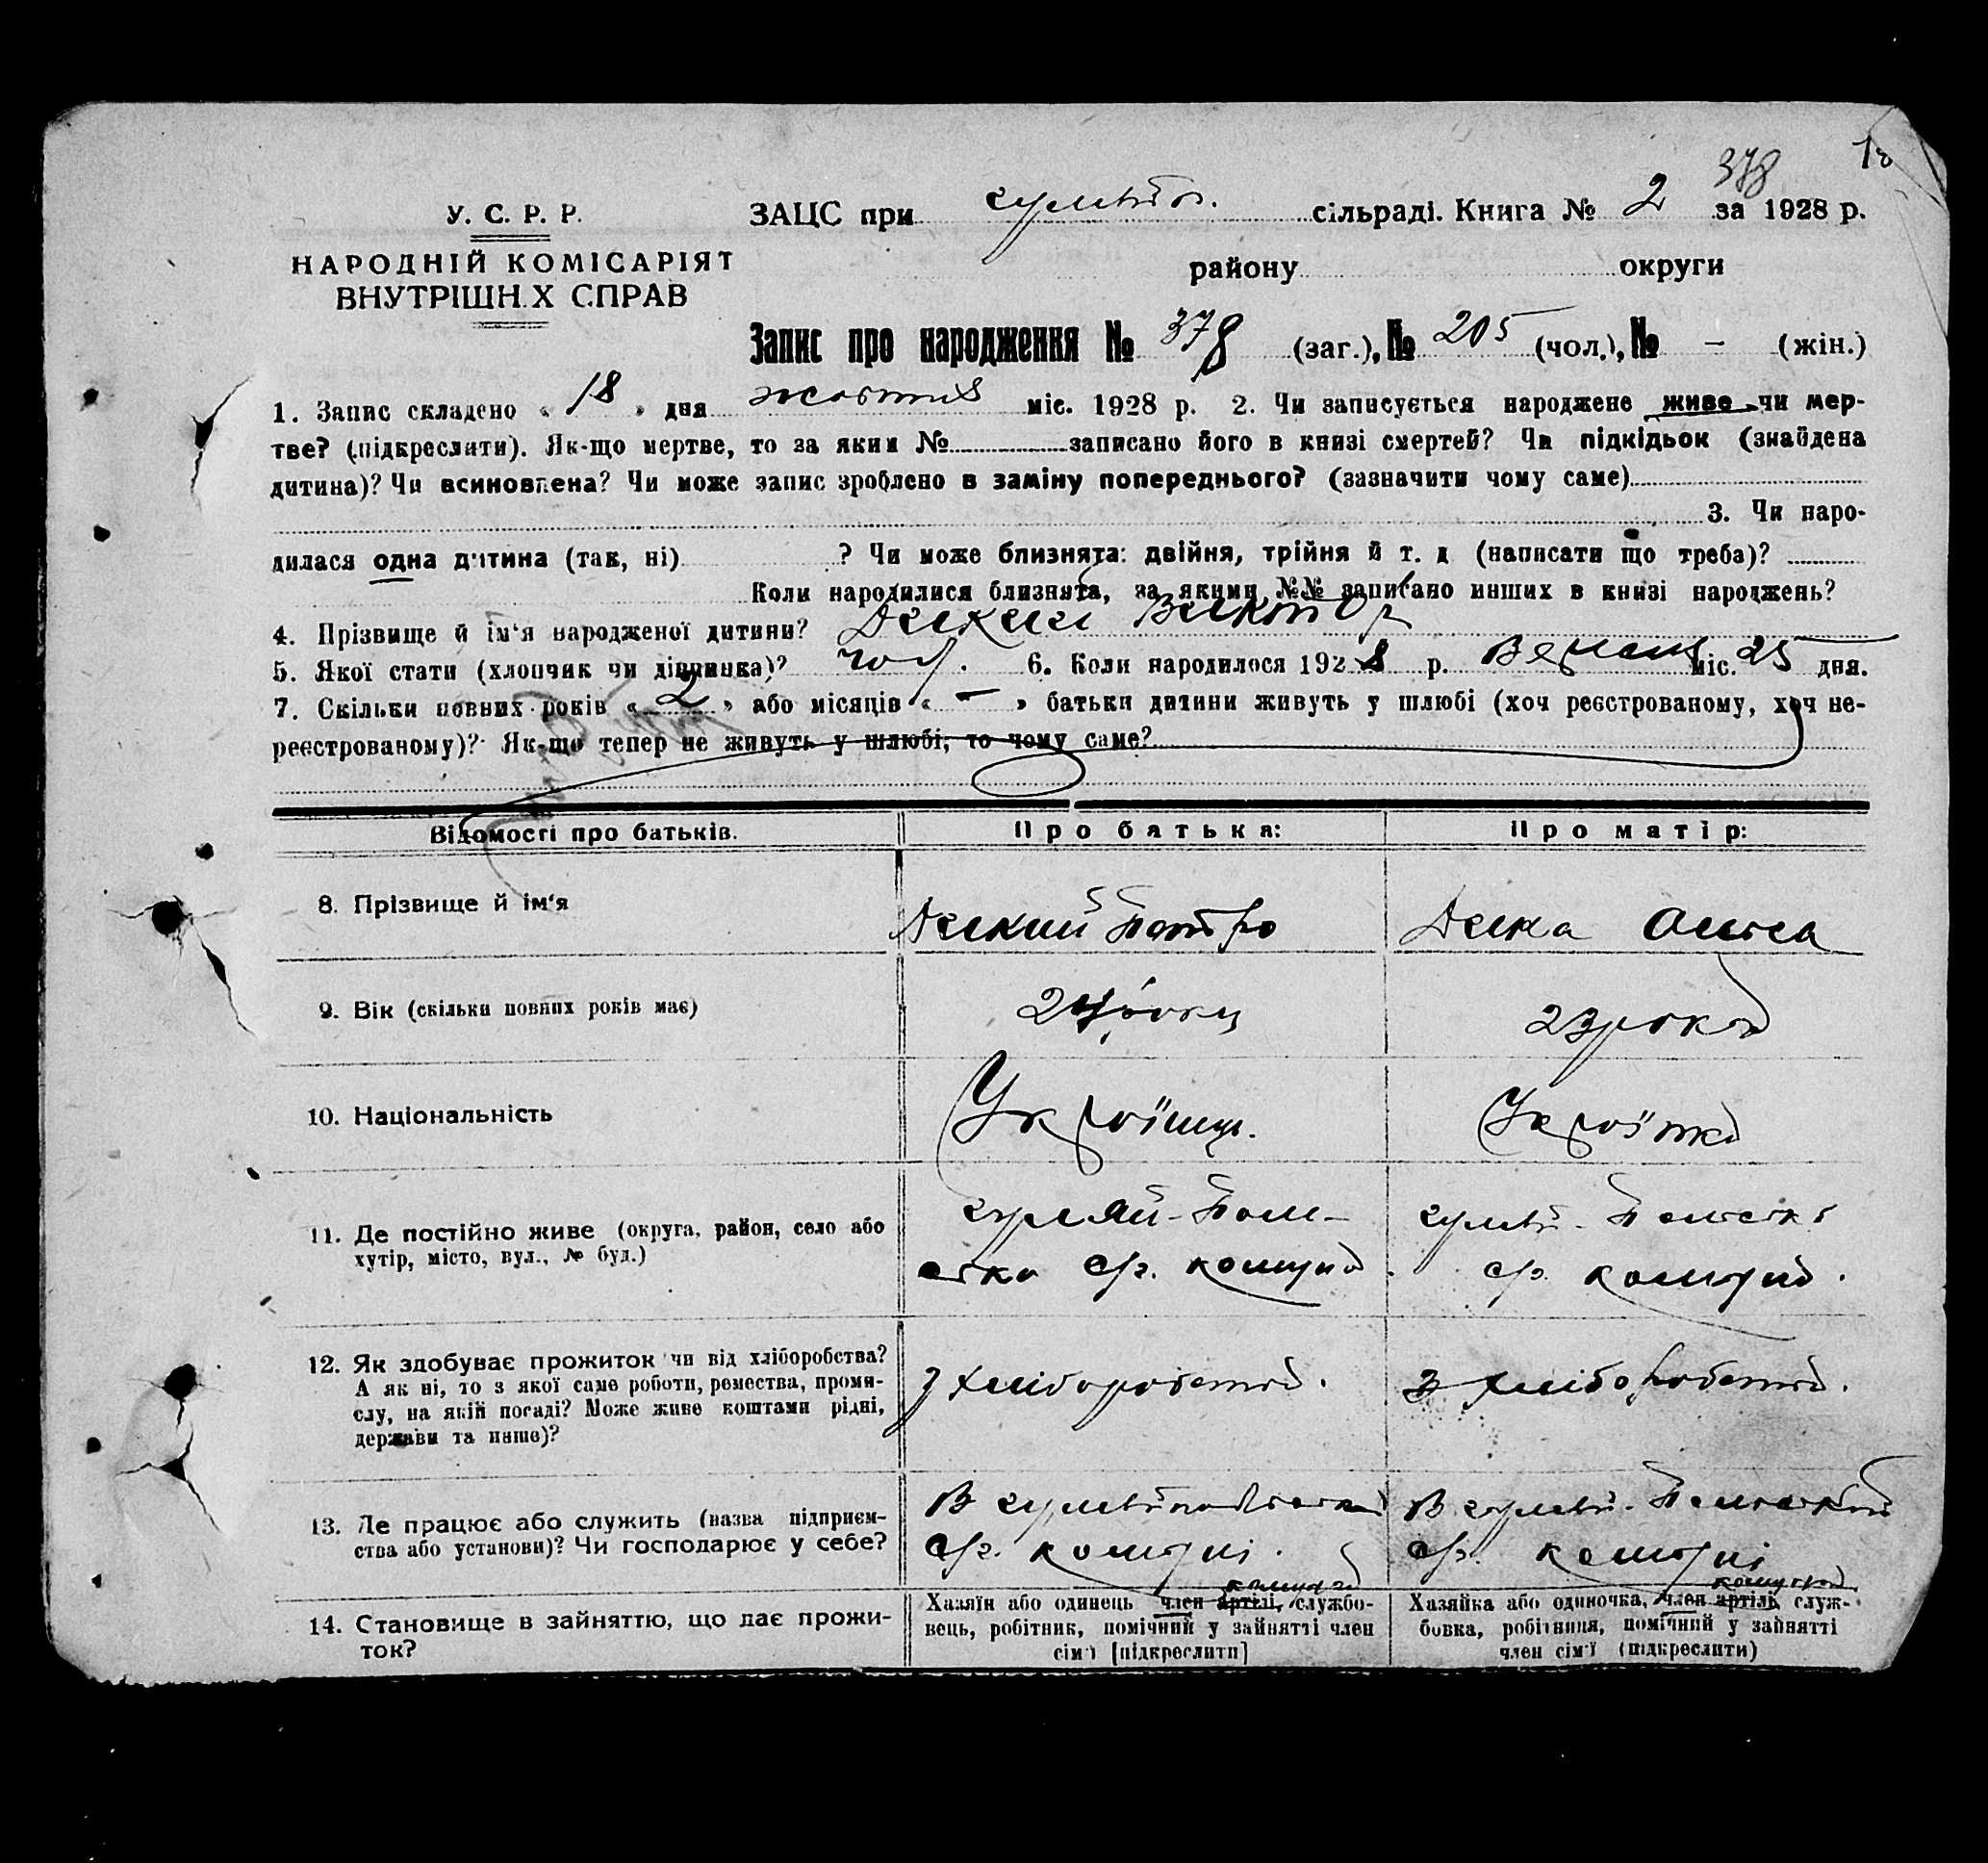 378
У. С. Р. Р.
ЗАЦС при гуляйп. сільраді. Книга № 2 за 1928 р.
НАРОДНІЙ КОМІСАРІЯТ
району округи
ВНУТРІШН.Х СПРАВ
Запис про народження № 378 (заг.), № 205 (чол.), № – (жін.)
1. Запис складено « 18 » дня жовтня міс. 1928 р. 2. Чи записується народжене живе чи мер-
тве? (підкреслити). Як-що мертве, то за яким № записано його в книзі смертей? Чи підкідьок (знайдена
дитина)? Чи всиновлена? Чи може запис зроблено в заміну попереднього? (зазначити чому саме)
3. Чи наро-
дилася одна дитина (так, ні) ? Чи може близнята: двійня, трійня й т. д (написати що треба)?
Коли народилися близнята, за якими №№ записано инших в книзі народжень?
4. Прізвище й ім'я народженої дитини? Виктор
5. Якої стати (хлопчик чи дівчинка)? чол. 6. Коли народилося 1928 р. Вересня міс. 25 дня.
7. Скільки повних років « 2 » або місяців « – » батьки дитини живуть у шлюбі (хоч реєстрованому, хоч не-
реєстрованому)? Як-що тепер не живуть у шлюбі, то чому саме?
Відомості про батьків. Про батька: Про матір:
8. Прізвище й ім'я Петро
9. Вік (скільки повних років має) роки 23 роков
10. Національність Українць. Українка
11. Де постійно живе (округа, район, село або
хутір, місто, вул., № буд.)
гуляй-Поль-
ська с/г. комуна
гуляй-Польська
с/г. комуна.
12. Як здобуває прожиток чи від хліборобства?
А як ні, то з якої саме роботи, ремества, проми-
слу, на якій посаді? Може живе коштами рідні,
держави та инше)?
З хліборобства.
З хліборобства.
13. Де працює або служить (назва підприєм-
ства або установи)? Чи господарює у себе?
В гуляйпольській
с/г. комуні.
В гуляй-Польській
с/г. комуні
14. Становище в зайняттю, що дає прожи-
ток?
комуни
Хазяїн або одинець член артілі, службо-
вець, робітник, помічний у зайнятті член
сім'ї [підкреслити]
комуни
Хазяйка або одиночка, член артілі, служ-
бовка, робітниця, помічний у зайнятті
член сім'ї (підкреслити)